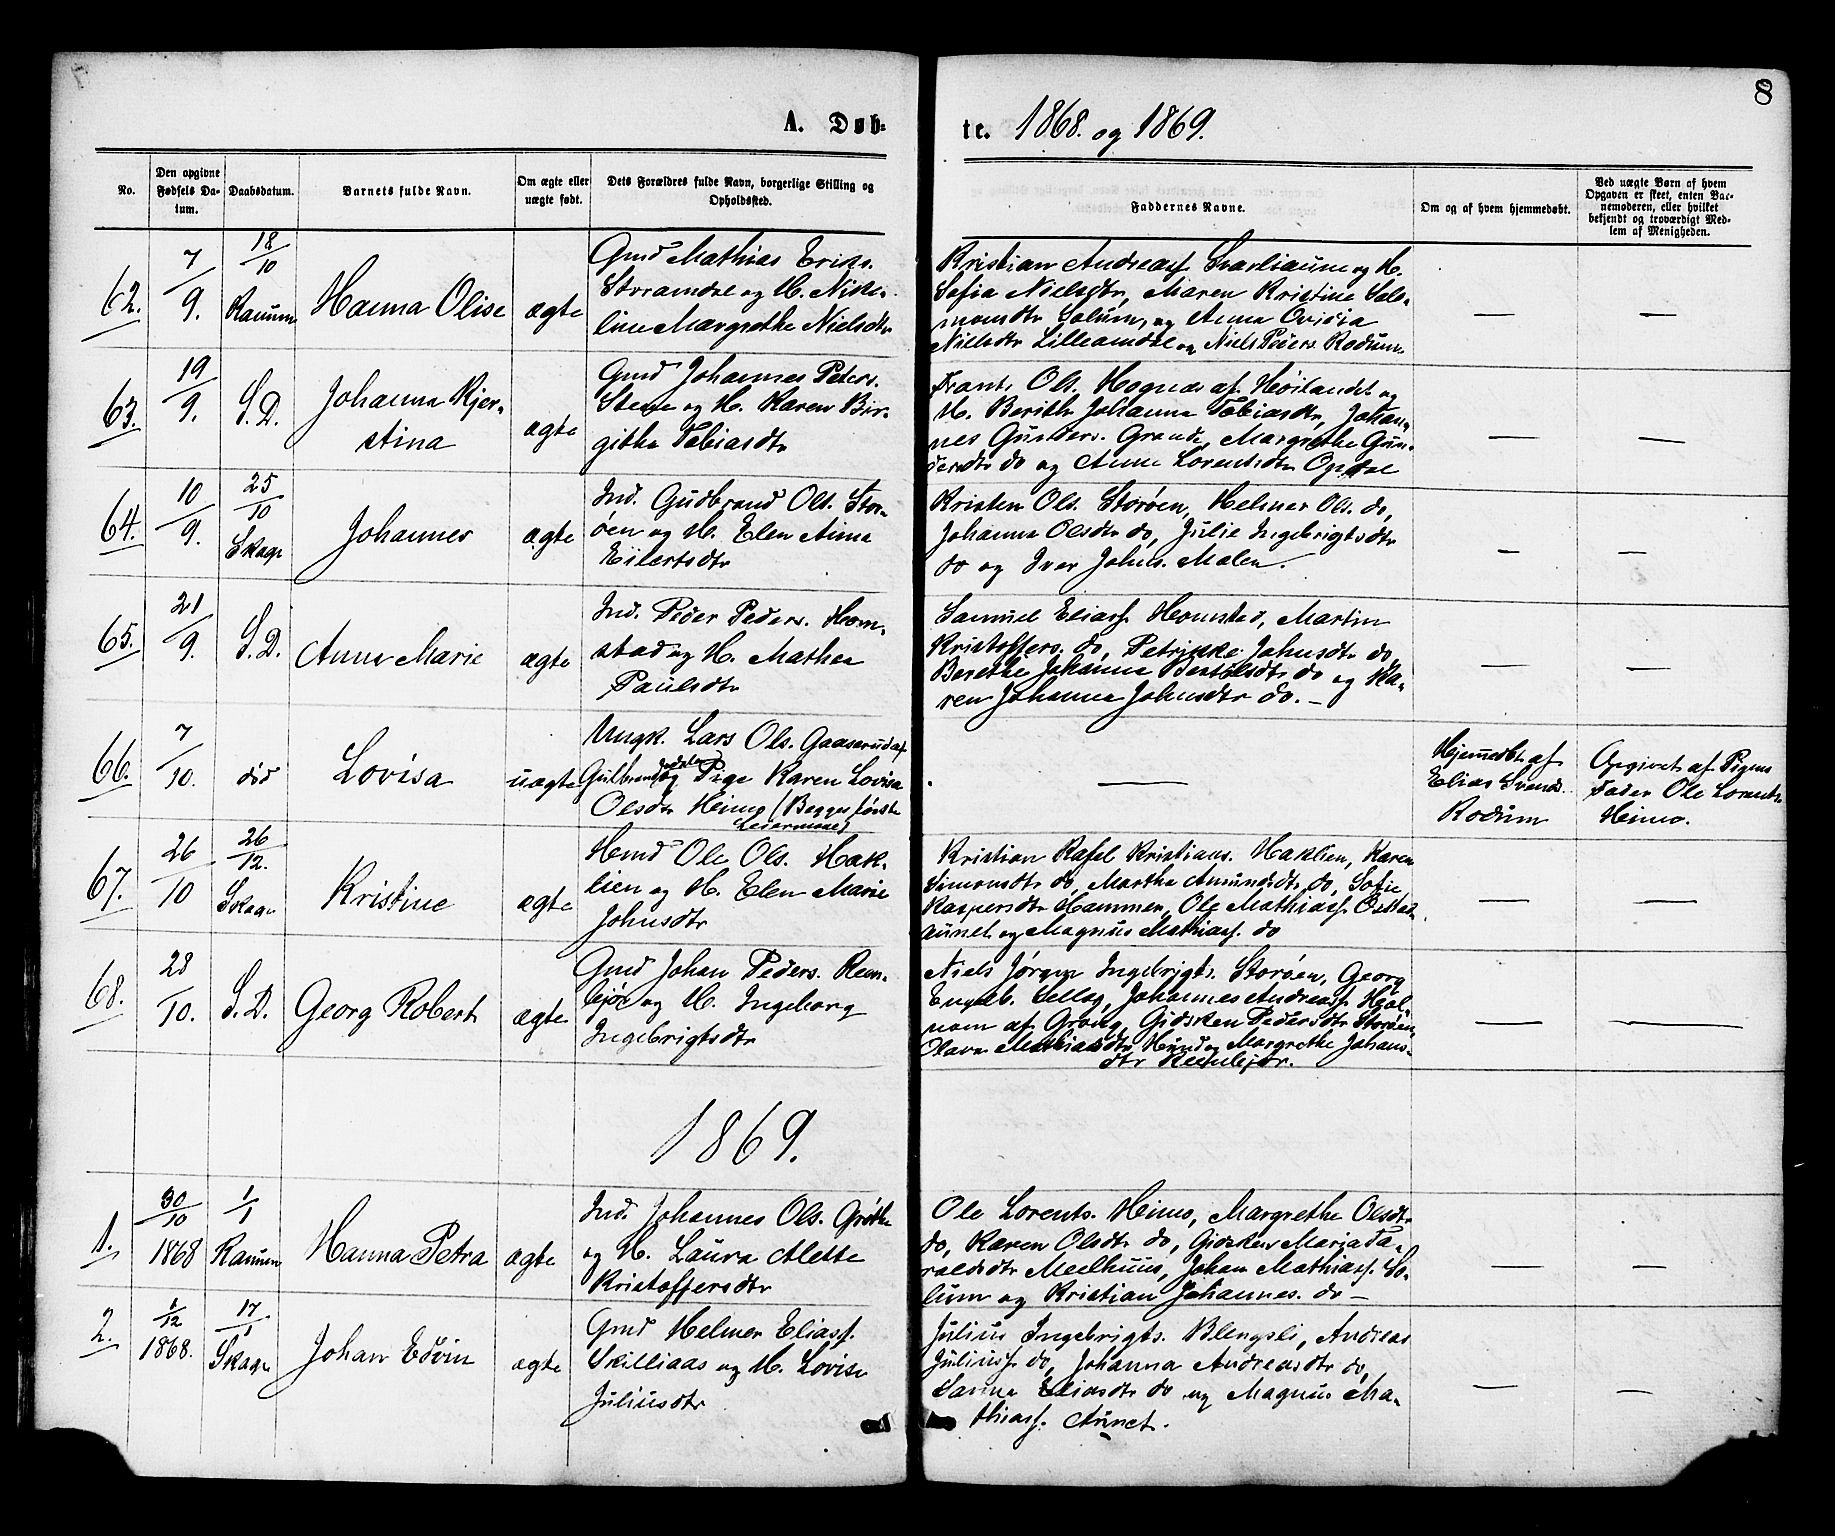 8
A. Døb-
te. 1868. og 1869.
No.
Den opgivne
Fødsels Da-
tum.
Daabsdatum.
Barnets fulde Navn.
Om ægte eller
uægte født.
Dets Forældres fulde Navn, borgerlige Stilling og
Opholdssted.
Faddernes Navne.
Om og af hvem hjemmedøbt.
Ved uægte Børn af hvem
Opgaven er skeet, enten Bar-
nemoderen, eller hvilket
bekjendt og troværdigt Med-
lem af Menigheden.
62.
7/9.
18/10
Ranum
Hanna Olise
ægte
Gmd Mathias Eriks.
Storamdal og H. Niko-
line Margrethe Nielsdtr
Kristian Andreass. Svarliaune og H.
Sofia Nielsdtr, Maren Kristine Salo-
monsdtr Solum, og Anna Ovidia
Nielsdtr Lilleamdal og Niels Peders. Rodum.
—
—
63.
19/9.
S.D.
Johanna Kjer-
stina
ægte
Gmd Johannes Peters.
Stene og H. Karen Bir-
githa Tobiasdtr
Frants Ols. Hognes af Høilandet og
H. Berith Johanna Tobiasdtr, Johan-
nes Gunders. Grande, Margrethe Gun-
dersdtr do og Anne Lorentsdtr Opdal
—
—
64.
10/9.
25/10
Skage
Johannes
ægte
Ind. Gudbrand Ols. Stor-
øen og H. Elen Anna
Eilertsdtr
Kristen Ols. Storøen, Helmer Ols. do,
Johanna Olsdtr do, Julie Ingebrigtsdtr
do og Iver Johns. Malen.
—
—
65.
21/9.
S.D.
Anna Marie
ægte
Ind. Peder Peders. Hom-
stad og H. Mathea
Paulsdtr
Samuel Eliass. Homstad, Martin
Kristoffers. do, Petrikke Johnsdtr do
Berethe Johanna Bertelsdtr do og Ka-
ren Johanna Johnsdtr do. –
—
—
66.
7/10.
død
Lovisa
uægte
Ungk. Lars Ols. Gaaserud af
Gulbrandsdalen
og Pige Karen Lovisa
Olsdtr Heimo (Begges første
Leiermaal)
—
Hjemmedøbt af
Elias Svends.
Rodum
Opgivet af Pigens
Fader Ole Lorents.
Heimo.
67.
26/10
26/12.
Skage
Kristine
ægte
Hmd Ole Ols. Hak-
lien og H. Elen Marie
Johnsdtr
Kristian Rafel Kristians. Haklien, Karen
Simonsdtr do, Martha Amundsdtr do, Sofie
Kaspersdtr Hammer, Ole Mathiass. Østad-
aunet og Magnus Mathiass. do
—
—
68.
28/10.
S.D.
Georg Robert
ægte
Gmd Johan Peders. Rem-
bjør og H. Ingeborg
Ingebrigtsdtr
Niels Jørgen Ingebrigts. Storøen, Georg
Engelb. Sellæg, Johannes Andreass. Hjal-
nom af Grong, Gidsken Pedersdtr Storøen,
Olava Mathiasdtr Hund og Margrethe Johans-
dtr Rembjør.
—
—
1869.
1.
30/10
1868
1/1
Ranum
Hanna Petra
ægte
Ind. Johannes Ols. Grøthe
og H. Laura Alette
Kristoffersdtr
Ole Lorents. Heimo, Margrethe Olsdtr
do, Karen Olsdtr do, Gidsken Maria Ta-
raldsdtr Meelhuus, Johan Mathiass. So-
lum og Kristian Johannes. do –
—
—
2.
1/12
1868.
17/1
Skage
Johan Edvin
ægte
Gmd Helmer Eliass.
Skilliaas og H. Lovise
Juliusdtr
Julius Ingebrigts. Blengsli, Andreas
Juliuss. do, Johanna Andreasdtr do,
Sanna Eliasdtr do og Magnus Ma-
thiass. Aunet.
—
—